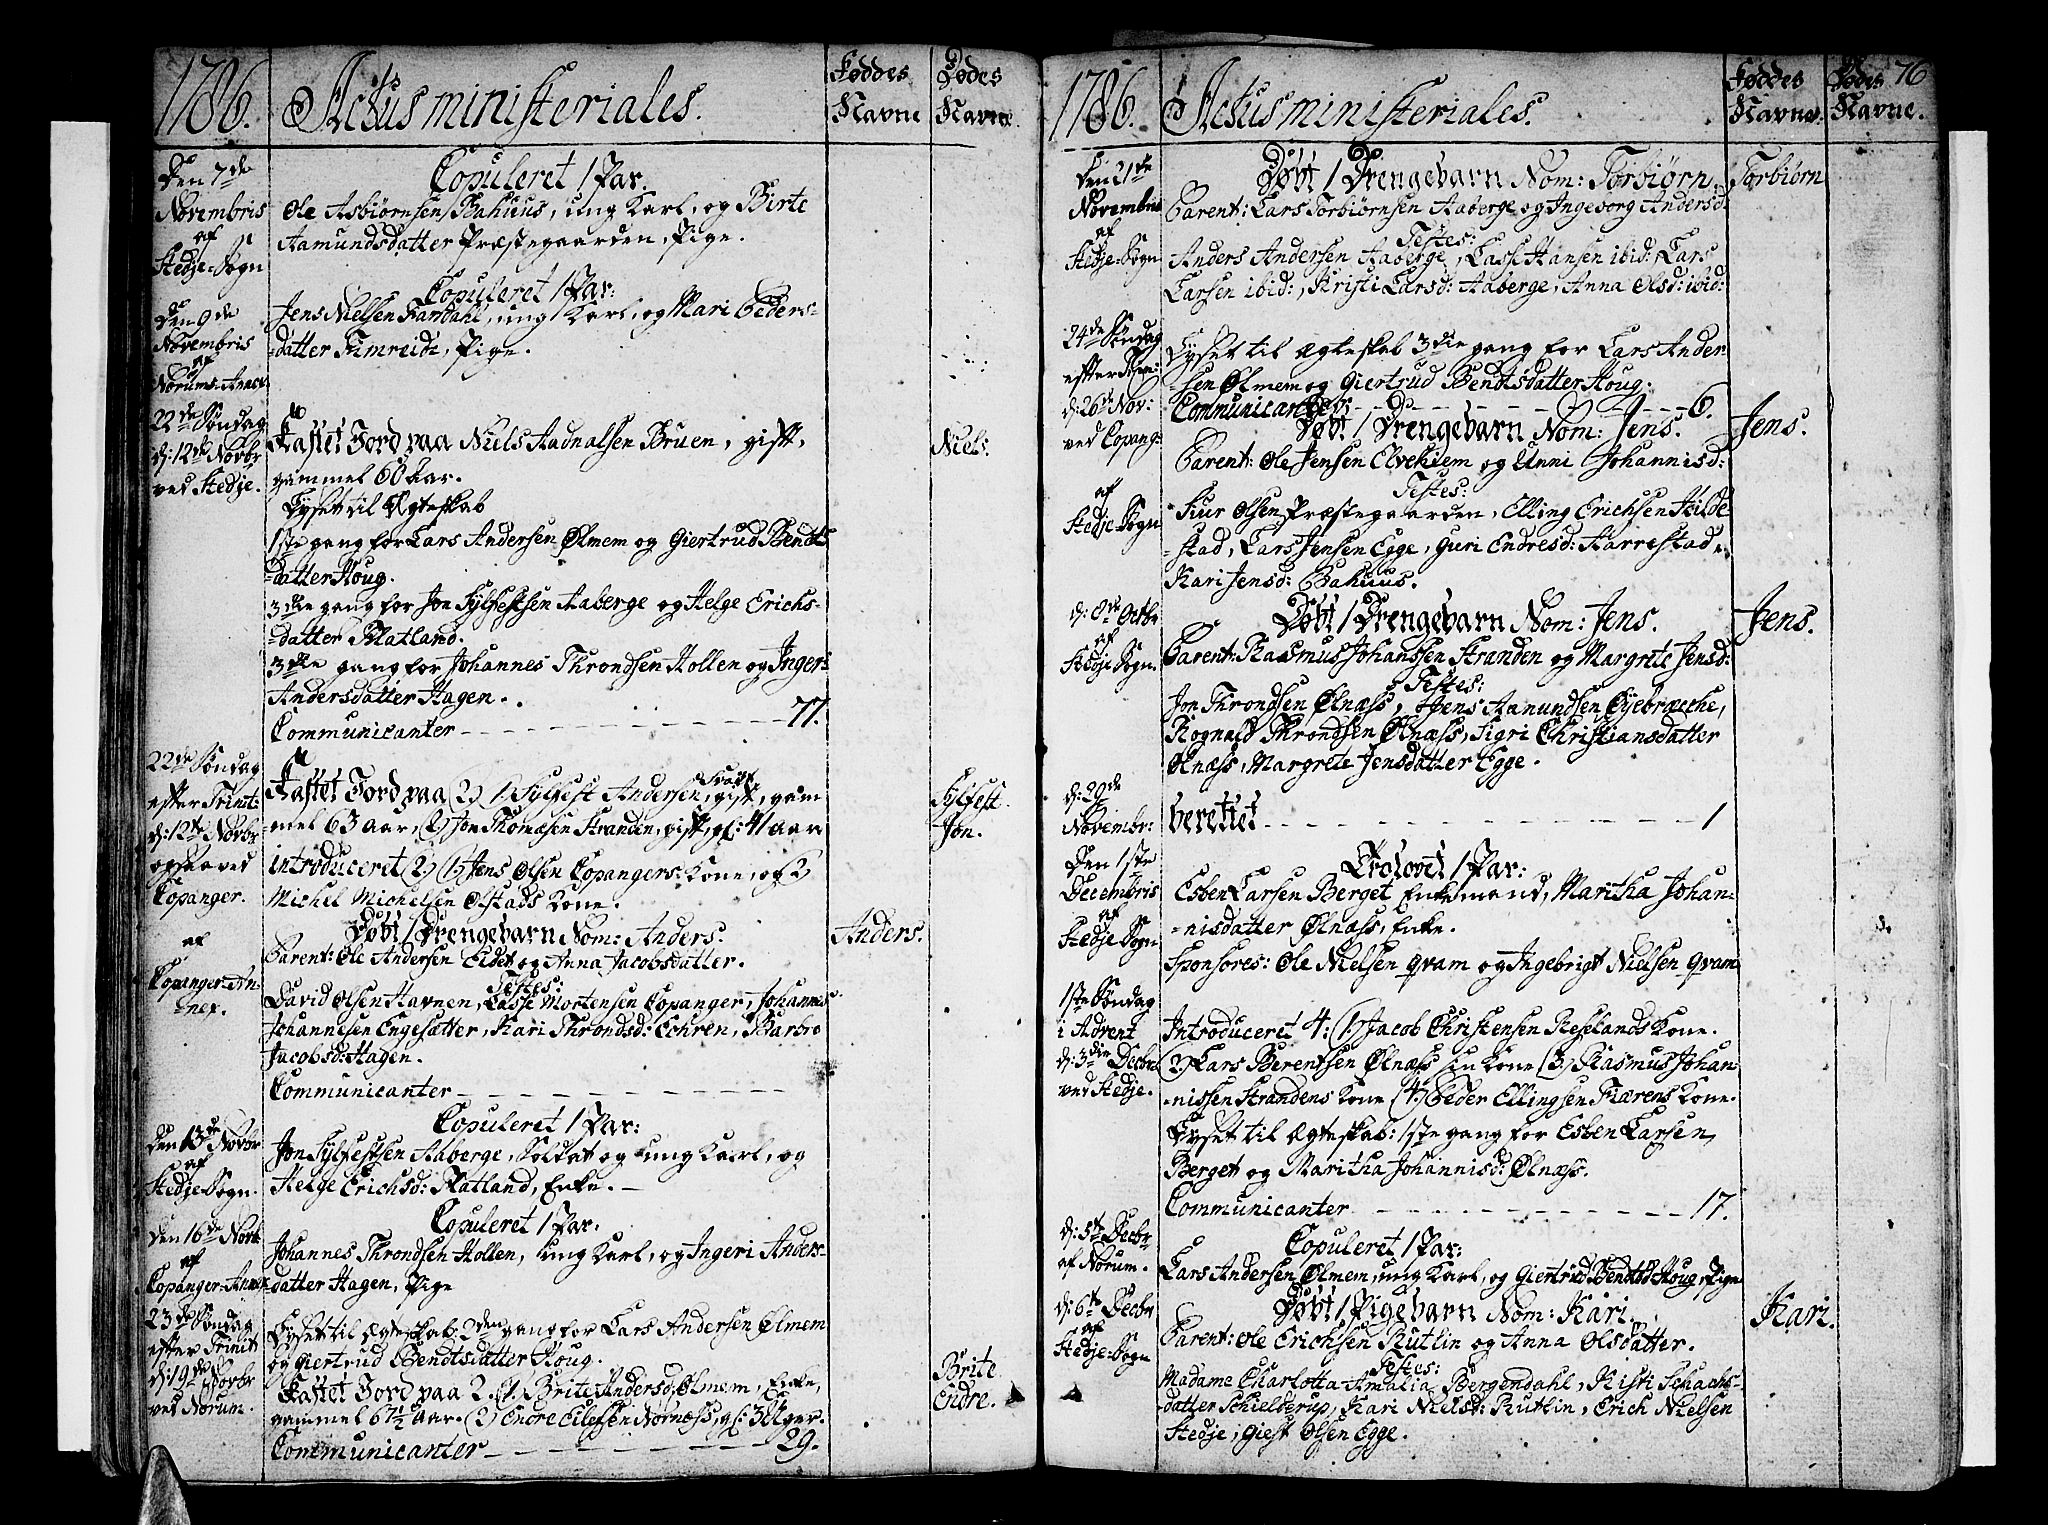 1786.
Actus ministeriales.
Føddes
Navne
Dødes
Navne
Den 7de
Novembris
af
Stedje-Sogn
Copuleret 1 Par.
Ole Asbiørnsen Bahuus, ung Karl, og Birte
Aamundsdatter Præstegaarden, Pige.
Den 9de
Novembris
af
Norums-Anex
Copuleret 1 Par:
Jens Nielsen Fardahl, ung Karl, og Mari Peders-
datter Fimreide, Pige.
22de Søndag
d: 12te Novbr
ved Stedje.
Kastet Jord paa Niels Aadnalsen Bruen, gift,
gammel 60 Aar.
Niels
Lyset til Ægteskab
1ste gang for Lars Andersen Ølmem og Giertrud Bendts
datter Houg.
3die gang for Jon Sylfestsen Aaberge og Helge Erichs-
datter Flatland.
3die gang for Johannes Throndsen Hollen og Inger
Andersdatter Hagen.
Communicanter - - - - 77.
22de Søndag
efter Trinit:
d: 12te Novbr
ogsaa ved
Copanger.
Kastet Jord paa (2) 1) Sylfest Andersen, gift, gam
mel 63 aar, (2) Jon Thomæsen Stranden, gift, gl: 41 aar
Sylfest.
Jon.
introduceret (2) (1) Jens Olsen Copangers Kone, og 2
Michel Michelsen Ølstads Kone.
af
Copanger-An-
nex.
Døbt 1 Drengebarn Nom: Anders.
Anders.
Parent: Ole Andersen Eidet og Anna Jacobsdatter.
Testes:
David Olsen Havnen, Lasse Mortensen Copanger, Johannes
Johannesen Engesætter, Kari Throndsd: Lehren, Barbro
Jacobsd: Hagen.
Communicanter - - - -
Den 13de Novbr
af
Stedje-Sogn.
Copuleret 1 Par:
Jon Sylfestsen Aaberge, Soldat og ung Karl, og
Helge Erichsd: Flatland, Enke. -
Den 16de Novb
af
Copanger-Annex
Copuleret 1 Par.
Johannes Throndsen Hollen, ung Karl, og Ingeri Anders-
datter Hagen, Pige
23de Søndag
efter Trinit
d: 19de Novbr
ved Norum.
Lyset til Ægteskab 2den gang for Lars Andersen Ølmem
og Giertrud Bendtsdatter Houg.
Kastet Jord paa 2. (1) Brite Andersd: Ølmem, Enke,
gammel 67½ Aar. (2) Endre Eilefsen Nornæss, gl: 3 Uger.
Brite
Endre.
Communicanter - - - - 29.
1786.
Actus ministeriales.
Føddes
Navne.
Dødes
Navne.
76
Den 21de
Novembris
af
Stedje-Sogn
Døbt 1 Drengebarn Nom: Torbiørn.
Torbiørn
Parent: Lars Torbiørnsen Aaberge og Ingeborg Andersd:
Testes:
Anders Andersen Aaberge, Lasse Hansen ibid: Lars
Larsen ibid:, Kristi Larsd: Aaberge, Anna Olsd: ibid:
24de Søndag
efter Trin:
d: 26de Nov:
ved Copang:
Lyset til Ægteskab 3die gang for Lars Ander-
sen Ølmem og Giertrud Bendtsdatter Houg.
Communicanter - - - - 6.
af
Stedje-Sogn
Døbt 1 Drengebarn Nom: Jens.
Jens.
Parent: Ole Jensen Elvekiem og Unni Johannisd:
Testes:
Siur Olsen Præstegaarden, Elling Erichsen Kilde
stad, Lars Jensen Egge, Guri Endresd: Aarrestad,
Kari Jensd: Bahuus.
af
Stedje-Sogn.
Døbt 1 Drengebarn Nom: Jens.
Jens.
Parent: Rasmus Johanssen Stranden og Margrete Jensd:
Testes:
Jon Throndsen Ølnæss, Jens Aamundsen Øyebræche,
Rognald Throndsen Ølnæss, Sigri Christiansdatter
Ølnæss, Margrete Jensdatter Egge.
d: 29de
Novembr:
berettet - - - - 1
Den 1ste
Decembris
af
Stedje Sogn
Trolovet 1 Par:
Esben Larsen Berget Enkemand, Maritha Johan-
nisdatter Ølnæss, Enke.
Sponsores: Ole Nielsen Qvam og Ingebrigt Nielsen Qvam
1ste Søndag
i Advent
d: 3die Decbr
ved Stedje.
Introduceret 4: (1) Jacob Christensen Reselands Kone.
(2) Lars Berentsen Ølnæss sin Kone (3) Rasmus Johan-
nissen Strandens Kone (4) Peder Ellingsen Fiærens Kone.
Lyset til Ægteskab: 1ste gang for Esben Larsen
Berget og Maritha Johannisd: Ølnæss.
Communicanter - - - - 17.
d: 5te Decbr
af Norum.
Copuleret 1 Par:
Lars Andersen Ølmem, ung Karl, og Giertrud Bendtsd: Houg, Pige
d: 6te Decbr
af
Stedje-Sogn
Døbt 1 Pigebarn Nom: Kari.
Kari.
Parent: Ole Erichsen Kutlin og Anna Olsdatter.
Testes:
Madame Charlotta Amalia Bergendahl, Kisti Schachs-
datter Schielderup, Kari Nielsd: Kutlin, Erich Nielsen
Stedje, Giest Olsen Egge.